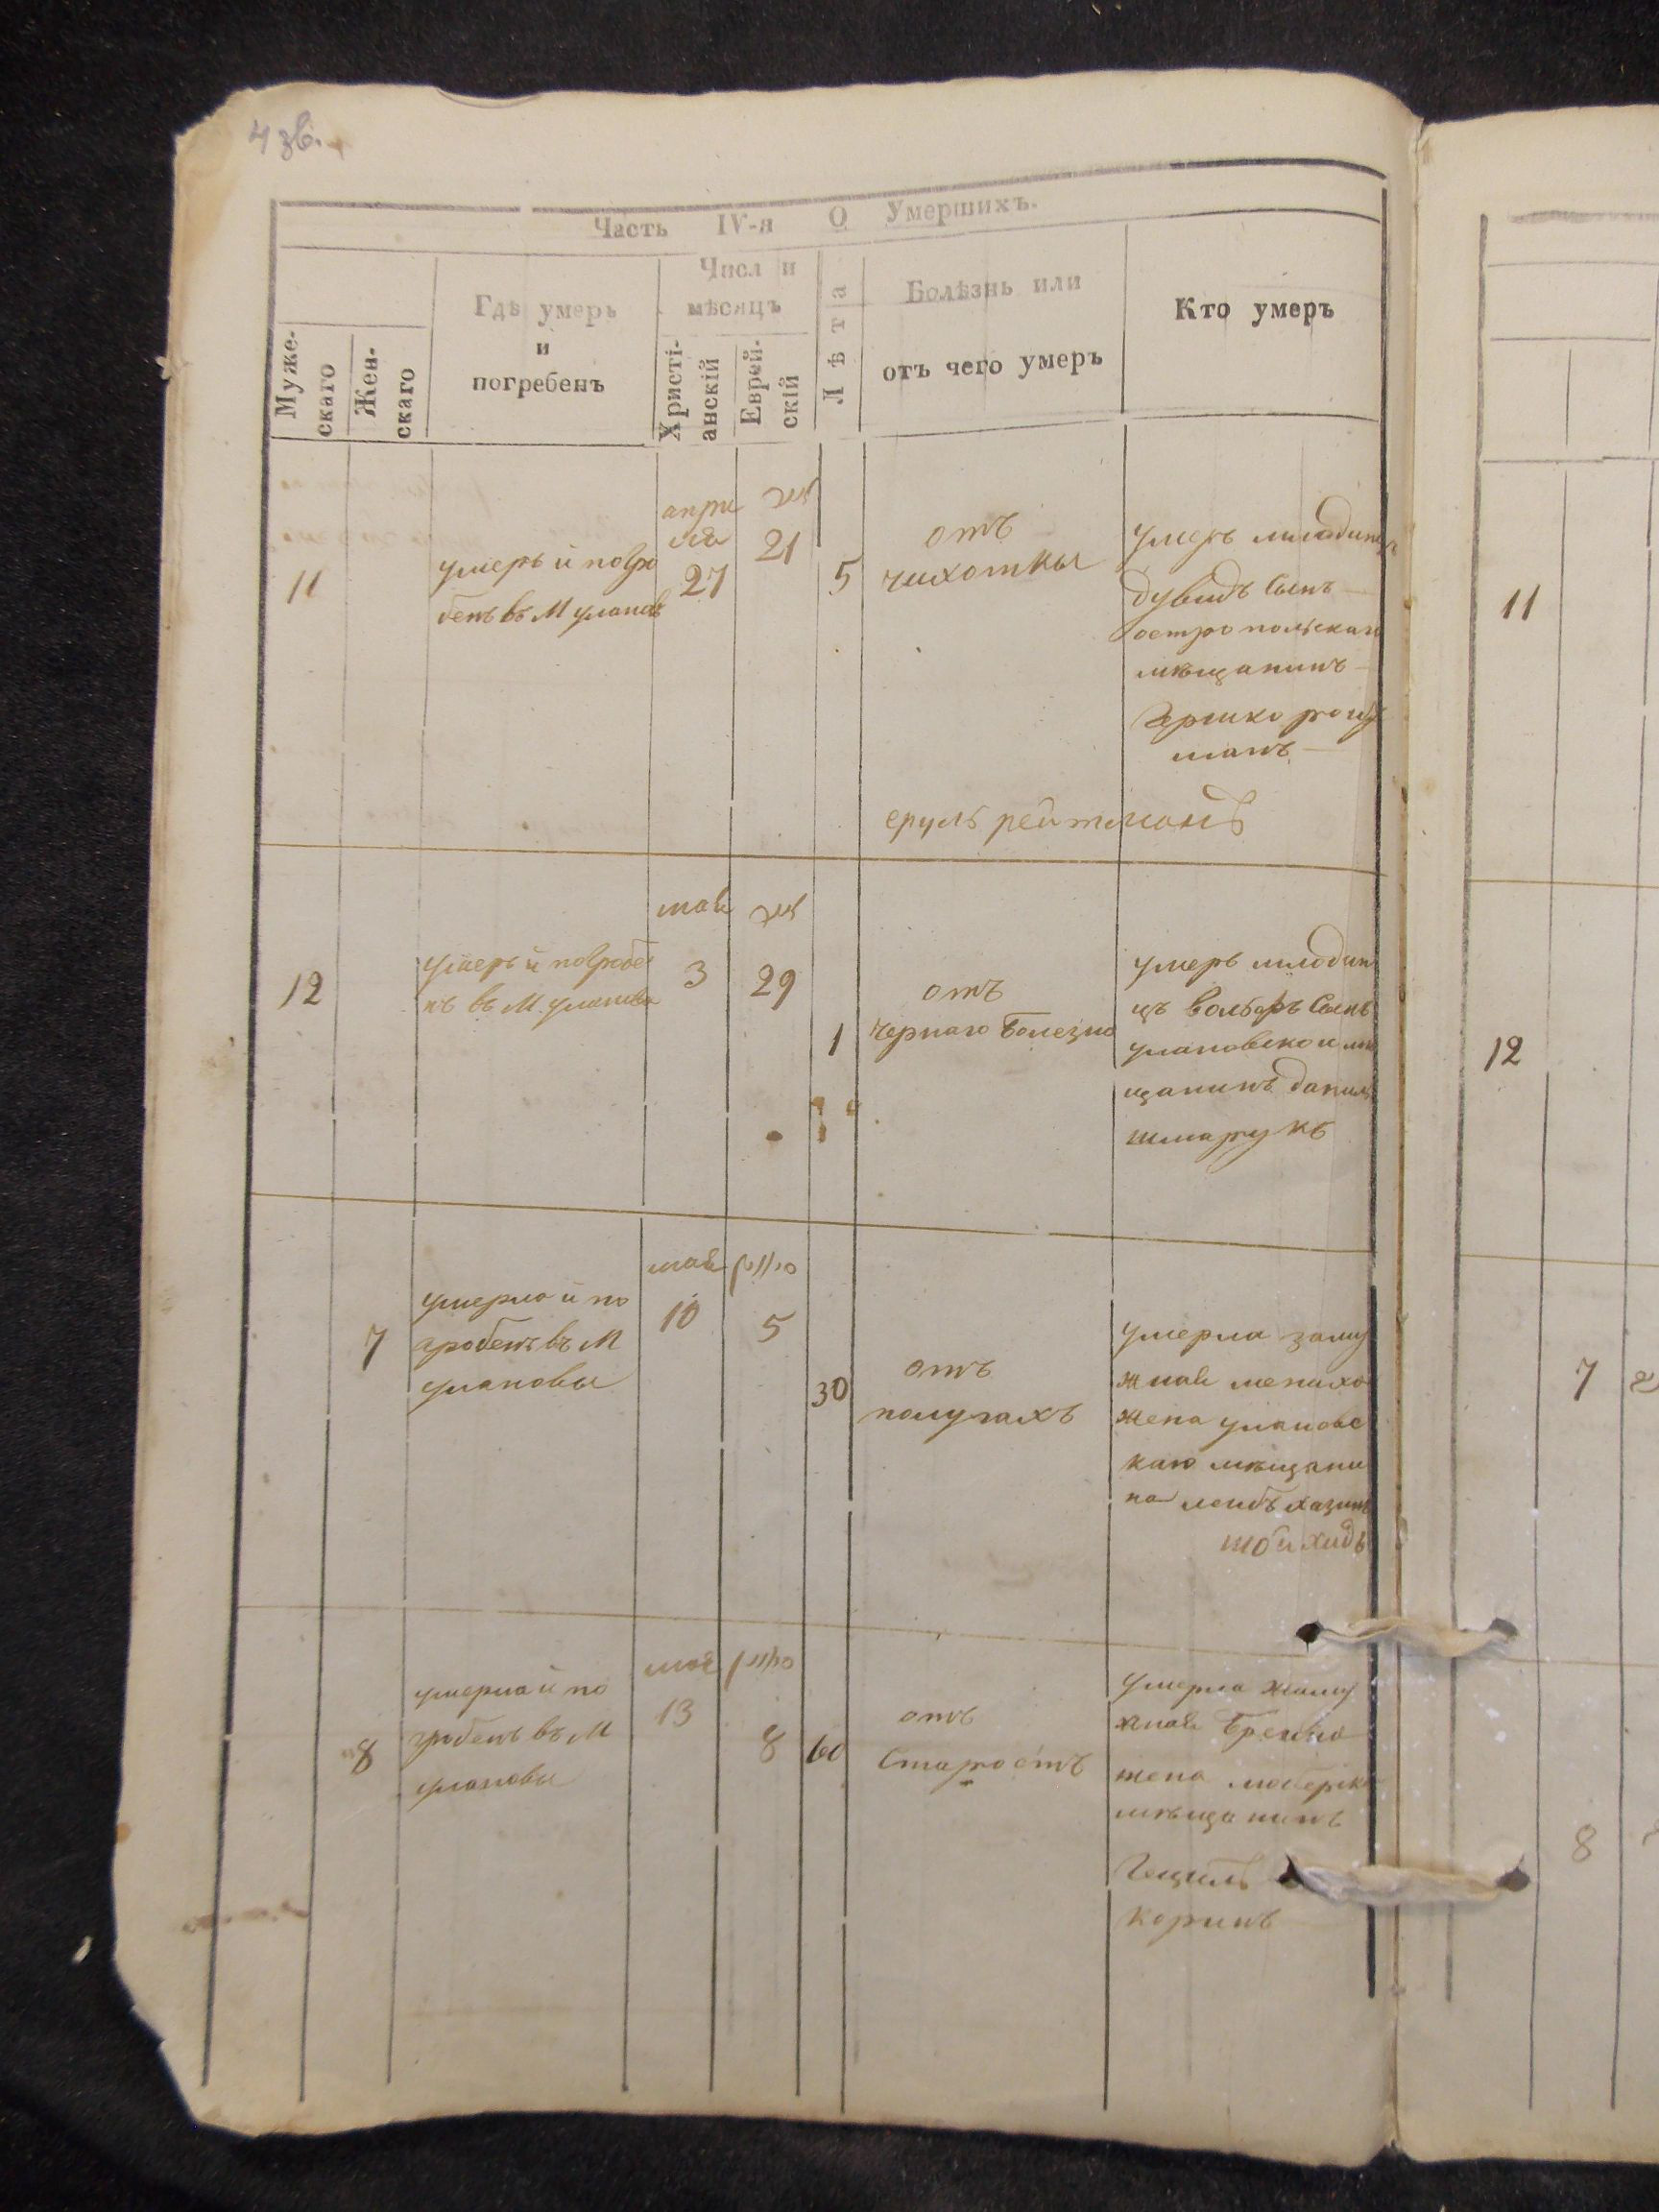 4 зв.
Часть IV-я О Умершихъ.
Муже-
скаго
Жен-
скаго
Гдѣ умеръ
и
погребенъ
Числ и
мѣсяцъ
Христі-
анскій
Еврей-
скій
Лѣта
Болѣзнь или
отъ чего умеръ
Кто умеръ
11
умеръ и погро
бенъ въ М уланов
апри
ля
27
21
5
отъ
чихотки
умеръ младинец
дувидъ сынъ
остропольскаго
мѣщанинъ
Гершко
манъ
рейтманъ
12
умеръ и погробе
нъ въ М уланова
мая
3
29
1
отъ
чернаго болезно
умеръ младин
цъ вольфъ сынъ
улановской мѣ
щанинъ даниль
шмарукъ
7
умерла и по
гробенъ въ М
улановы
мая
10
5
30
отъ
получахъ
умерла заму
жная менихо
жена улановс
каго мѣщани
на лейбъ хазин
8
умерла и по
гробенъ въ М
улановы
мая
13
8
60
отъ
старостъ
умерла жаму
жная
жена
мѣщанинъ
коринъ
11
12
7
8